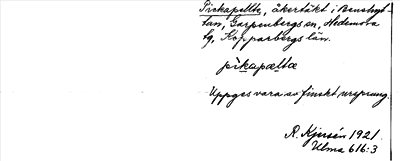 Pickapellta, åkertäkt i Benshyt-
tan, Garpenbergs sn, Hedemora
tg, Kopparbergs län.
pikapæltæ
Uppges vara av finskt ursprung.
R. Kjersén 1921.
Ulma 616:3